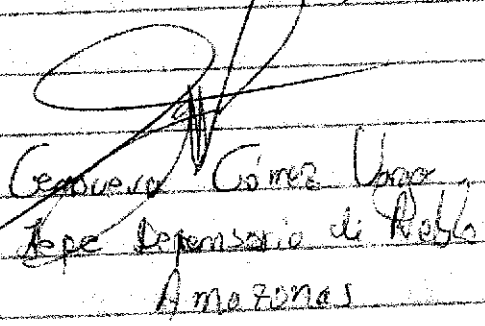 Genoveva Gómez Vargas
Jefe Defensoria del Pueblo
Amazonas